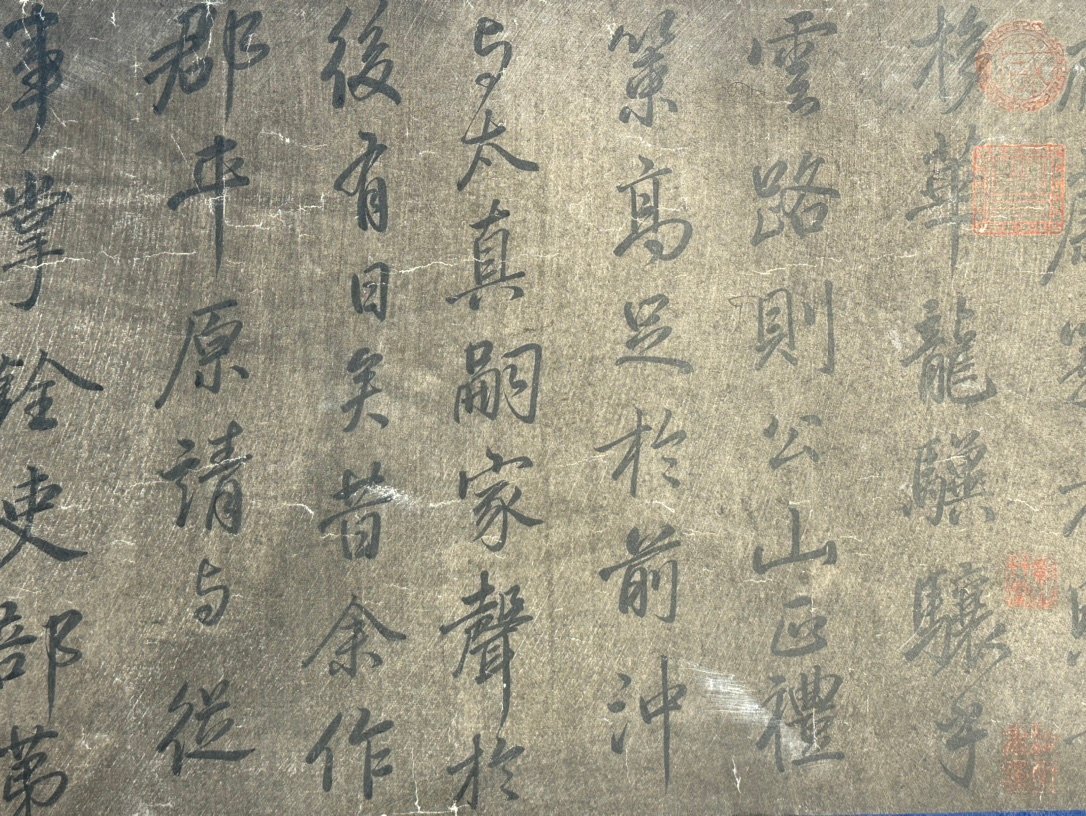 栘華龍驥驤乎
雲路則公山正禮
策高足於前沖
与太真嗣家聲於
後有日矣昔余作
郡平原請与從
事掌銓吏部第